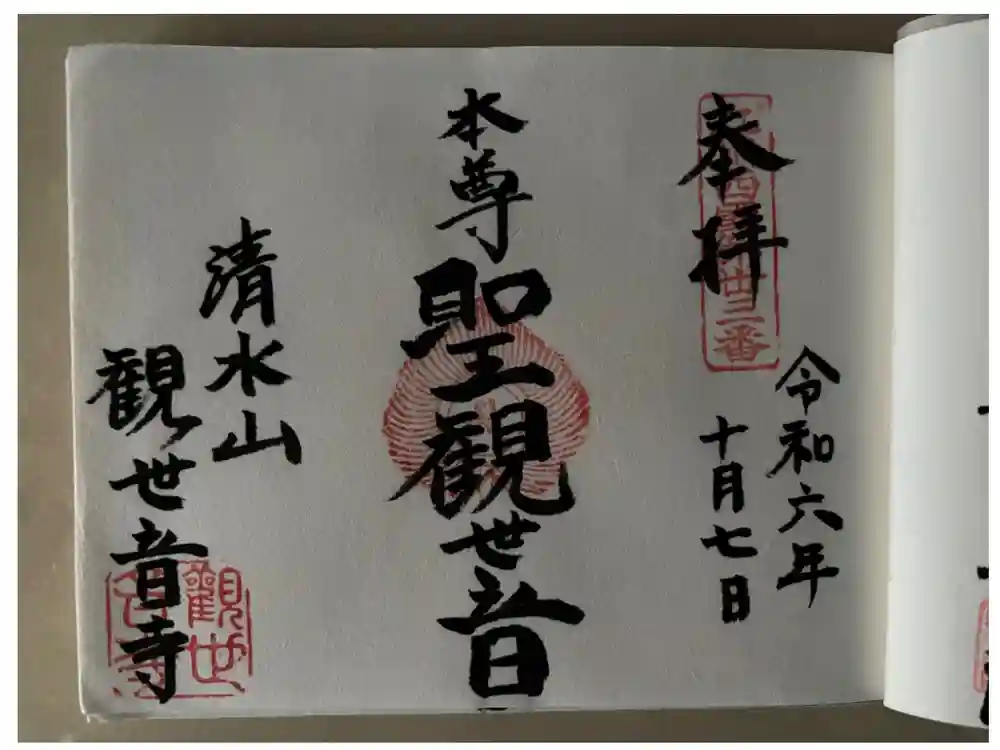 奉拝
令和六年
十月七日
本尊
聖観世音
清水山
観世音寺
観世音寺